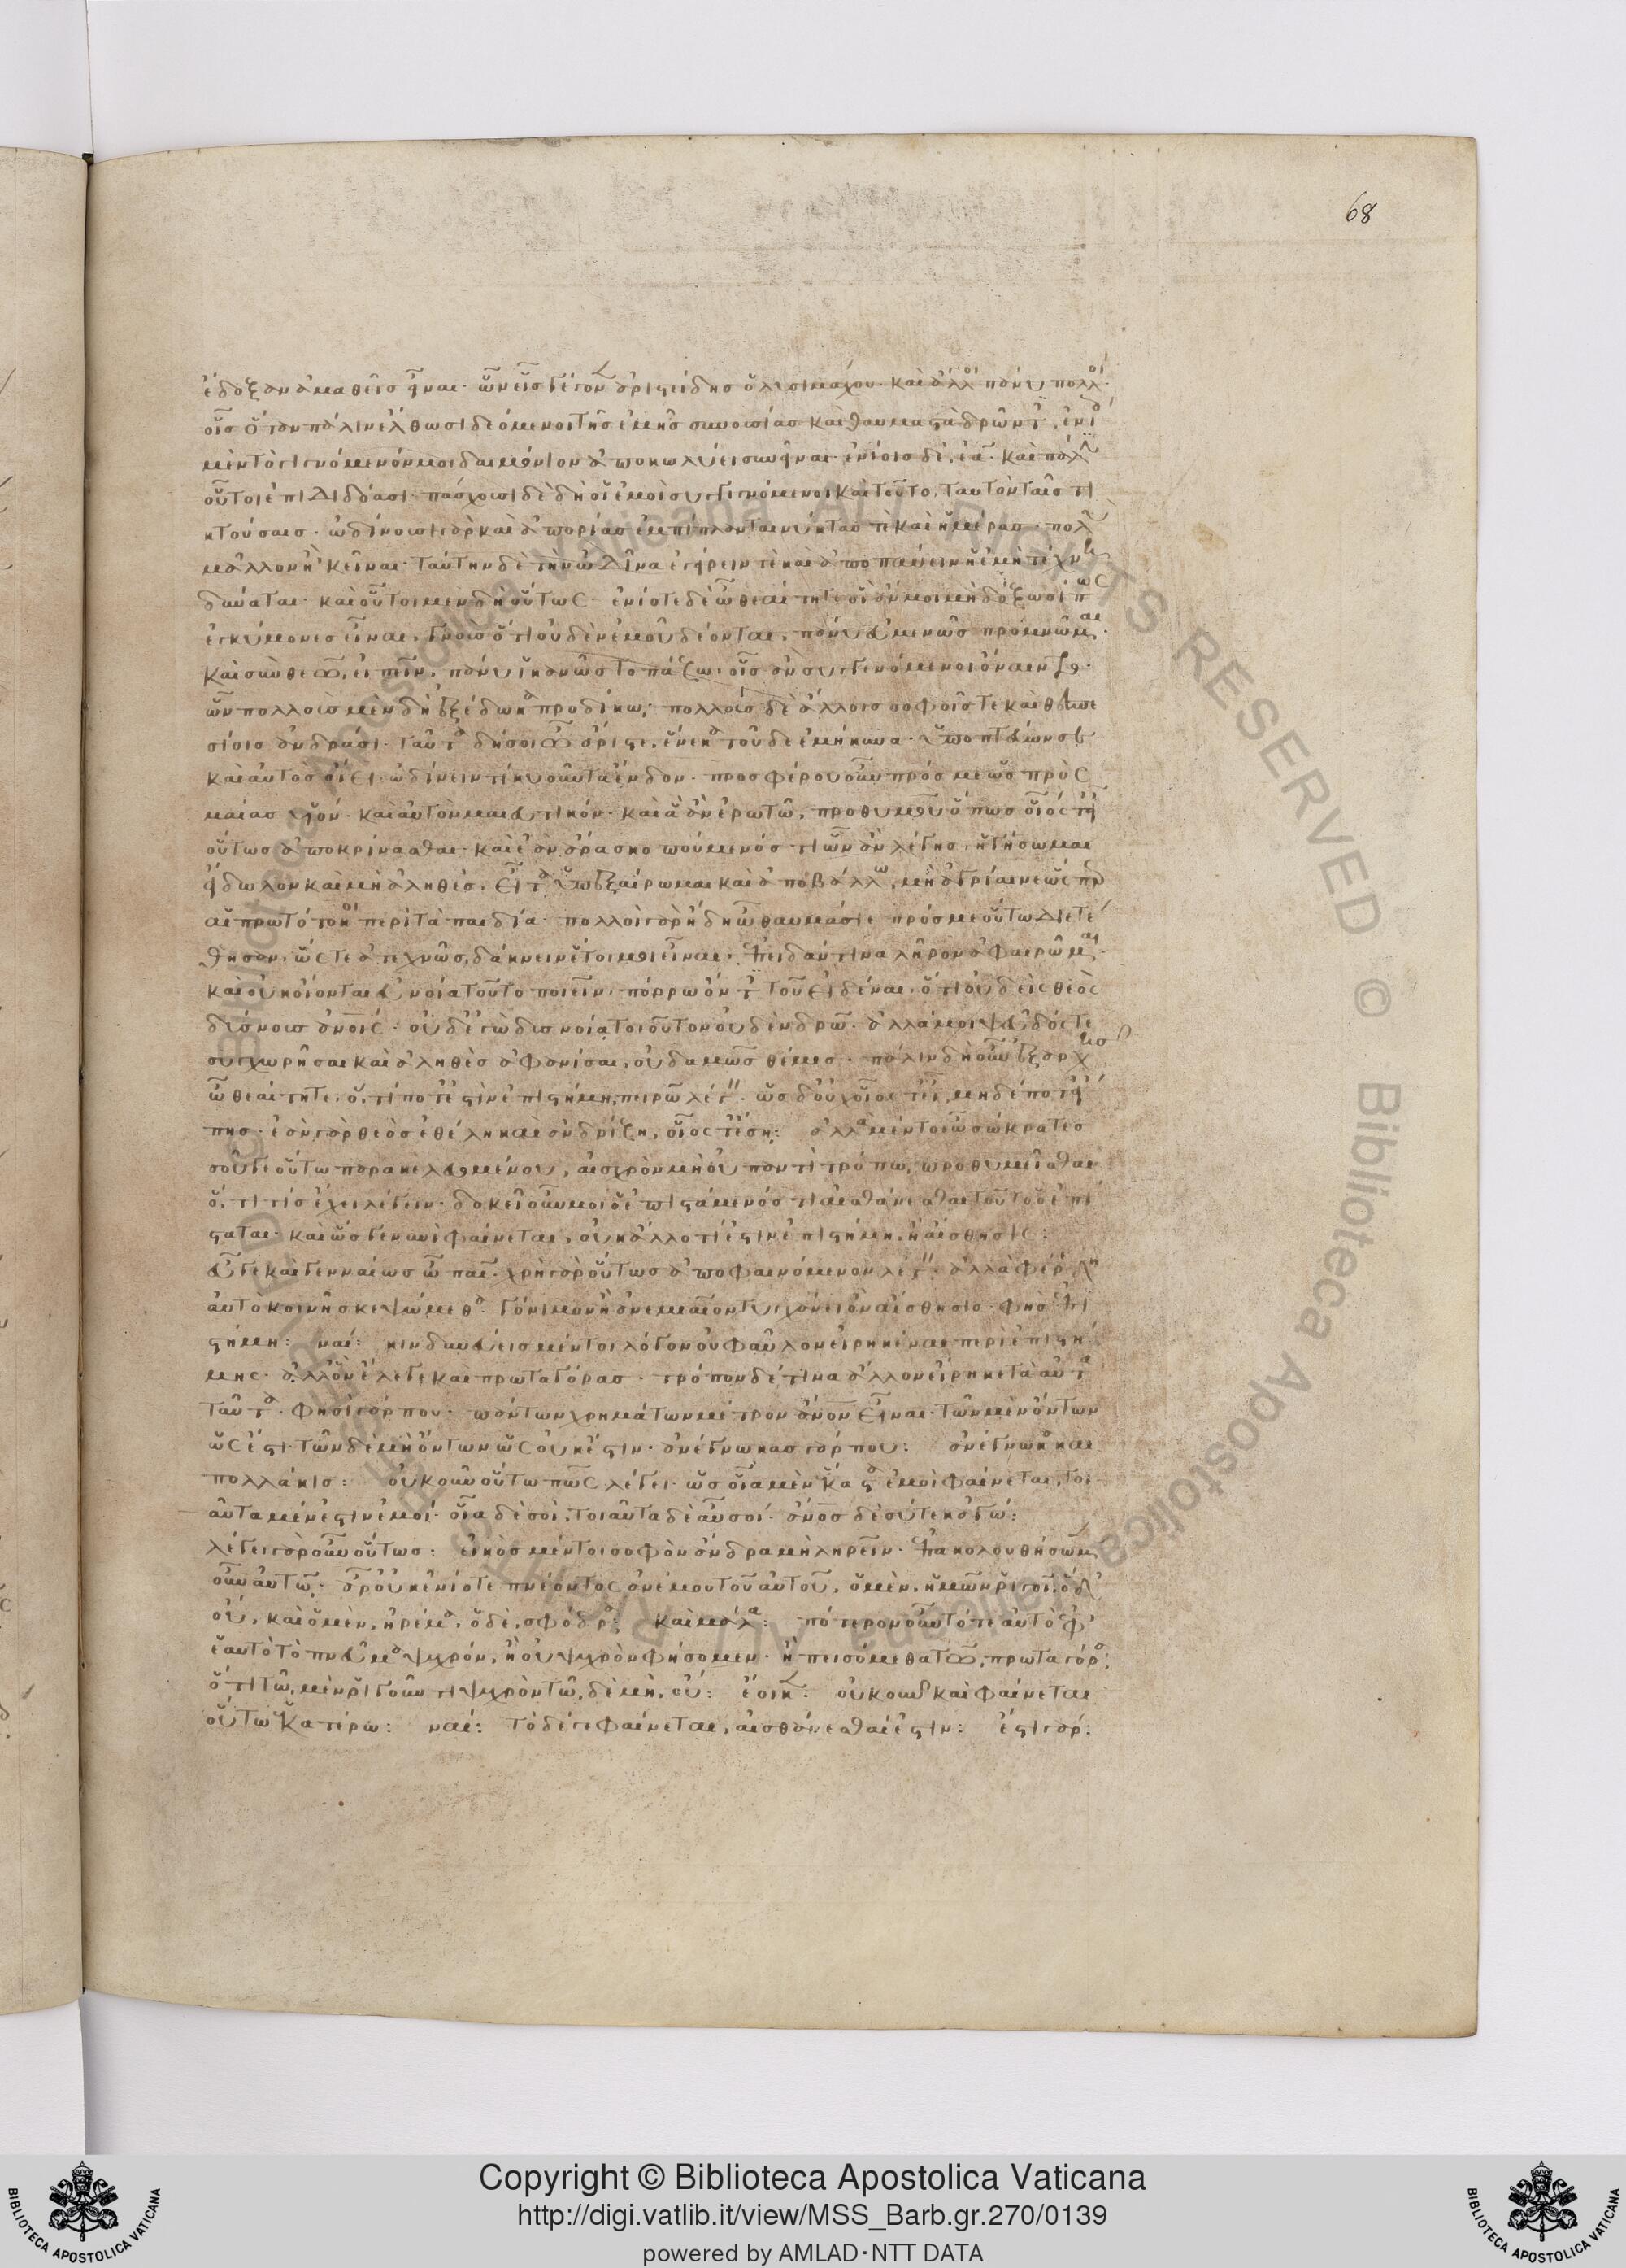 68
ἔδοξαν ἀμαθεῖς εἶναι· ὧν εἷς γέγονεν ἀριστείδης ὁ λυσιμάχου· καὶ ἄλλοι πάνυ πολλοί·
οἷς ὅταν πάλιν ἔλθωσι δεόμενοι τῆς ἐμῆς συνουσίας καὶ θαυμαστὰ δρῶντες, ἐνίοις
μὲν τὸ γιγνόμενόν μοι δαιμόνιον ἀποκωλύει συνεῖναι· ἐνίοις δὲ, ἐᾶ· καὶ πάλιν
οὗτοι ἐπιδιδόασι· πάσχουσι δὲ δὴ οἱ ἐμοὶ συγγιγνόμενοι καὶ τοῦτο, ταυτὸν ταῖς τι
κτούσαις· ὠδίνουσι γὰρ καὶ ἀπορίας ἐμπίπλανται νύκτας τὲ καὶ ἡμέρας· πολὺ
μᾶλλον ἢ κεῖναι· ταύτην δὲ τὴν ὠδῖνα ἐγείρειν τὲ καὶ ἀποπαύειν ἡ ἐμὴ τέχνη
δύναται· καὶ οὗτοι μὲν δὴ οὕτως· ἐνίοτε δὲ ὦ θεαίτητε οἳ ἄν μοι μὴ δόξωσί πως
ἐγκύμονες εἶναι, γνοὺς ὅτι οὐδὲν ἐμοῦ δέονται, πάνυ εὐμενῶς προμνῶμαι·
καὶ σὺν θεῷ, εἰπεῖν, πάνυ ἱκανῶς τοπάζω οἷς ἂν συγγενόμενοι ὄναιντο·
ὧν πολλοὺς μὲν δὴ ἐξέδωκα προδίκῳ· πολλοὺς δὲ ἄλλοις σοφοῖς τε καὶ θεσπε
σίοις ἀνδράσι· ταῦτα δή σοι ὦ ἄριστε, ἕνεκα τοῦδε ἐμήκυνα· ὑποπτεύων σε
καὶ αὐτὸς οἴει· ὠδίνειν τὶ κυοῦντα ἔνδον· προσφέρου οὖν πρός με ὡς πρὸς
μαίας υἱόν· καὶ αὐτὸν μαιευτικόν· καὶ ἃ ἂν ἐρωτῶ, προθυμοῦ ὅπως οἷός τ' εἶ
οὕτως ἀποκρίνασθαι· καὶ ἐὰν ἄρα σκοπούμενός τι ὧν ἂν λέγῃς, ἡγήσωμαι
εἴδωλον καὶ μὴ ἀληθές. εἶτα ὑπεξαίρωμαι καὶ ἀποβάλλω, μὴ ἀγρίαινε ὥσπερ
αἱ πρωτότοκοι περὶ τὰ παιδία· πολλοὶ γὰρ ἤδη ὦ θαυμάσιε πρός με οὕτω διετέ
θησαν, ὥστε ἀτεχνῶς, δάκνειν ἕτοιμοι εἶναι, ἐπειδάν τινα λῆρον ἀφαιρῶμαι·
καὶ οὐκ οἴονται εὐνοία τοῦτο ποιεῖν· πόρρω ὄντες τοῦ εἰδέναι. ὅτι οὐδεὶς θεὸς
δύσνους ἀνοις· οὐδ' ἐγὼ δυσνοίᾳ τοιοῦτον οὐδὲν δρῶ· ἀλλά μοι ψεῦδός τε
συγχωρῆσαι καὶ ἀληθὲς ἀφανίσαι, οὐδαμῶς θέμις· πάλιν δὴ οὖν ἐξ ἀρχῆς
ὦ θεαίτητε, ὅ, τί ποτ' ἐστὶν ἐπιστήμη, πειρῶ λέγειν· ὡς δ' οὐχ οἷός τ' εἶ, μηδέποτ' εἴ
πῃς· ἐὰν γὰρ θεὸς ἐθέλῃ καὶ ἀνδρίζῃ, οἷός τ' ἔσῃ: ἀλλὰ μέντοι ὦ σώκρατες
σοῦ γε οὕτω παρακελευομένου, αἰσχρὸν μὴ οὐ παντὶ τρόπῳ, προθυμεῖσθαι
ὅ, τι τίς ἔχει λέγειν· δοκεῖ οὖν μοι ὁ ἐπιστάμενός τι αἰσθάνεσθαι τοῦτο ὃ ἐπί
σταται· καὶ ὥς γε νυνὶ φαίνεται, οὐκ ἄλλο τί ἐστὶν ἐπιστήμη, ἢ αἴσθησις:
εὖ γε καὶ γενναίως ὦ παῖ· χρὴ γὰρ οὕτως ἀποφαινόμενον λέγειν· ἀλλὰ φέρε δὴ
αὐτὸ κοινῇ σκεψώμεθα· γόνιμον ἢ ἀνεμιαῖον τυγχάνει ὂν αἴσθησις· φῂς ἐπι
στήμη: ναί: κινδυνεύεις μέντοι λόγον οὐ φαῦλον εἰρηκέναι περὶ ἐπιστή
μης· ἀλλ' ὃν ἔλεγε καὶ πρωταγόρας· τρόπον δέ τινα ἄλλον εἴρηκε τὰ αὐτὰ
ταῦτα· φησὶ γάρ που· πάντων χρημάτων μέτρον ἄνον εἶναι· τῶν μὲν ὄντων
ὡς ἔστι· τῶν δὲ μὴ ὄντων ὡς οὐκ ἔστιν· ἀνέγνωκας γάρ που: ἀνέγνωκα καὶ
πολλάκις: οὐκοῦν οὕτω πῶς λέγει· ὡς οἷα μὲν ἕκαστα ἐμοὶ φαίνεται, τοι
αῦτα μέν ἐστὶν ἐμοί· οἷα δὲ σοὶ, τοιαῦτα δὲ αὖ σοί· ἄνος δὲ σύ τε κἀγώ:
λέγει γὰρ οὖν οὕτως: εἰκὸς μέντοι σοφὸν ἄνδρα μὴ ληρεῖν· ἐπακολουθήσωμεν
οὖν αὐτῷ· ἆρ' οὐκ ἐνίοτε πνέοντος ἀνέμου τοῦ αὐτοῦ, ὁ μὲν, ἡμῶν ῥιγοῖ, ὁ δ'
οὔ, καὶ ὁ μὲν, ἠρέμα, ὁ δὲ, σφόδρα: καὶ μάλα: πότερον οὖν τότε αὐτὸ ἐφ'
ἑαυτὸ τὸ πνεῦμα ψυχρόν, ἢ οὐ ψυχρὸν φήσομεν· ἢ πεισόμεθα τῷ, πρωταγόρᾳ,
ὅτι τῷ, μὲν ῥιγοῦντι ψυχρὸν τῷ, δὲ μὴ, οὔ: ἔοικεν: οὐκοῦν καὶ φαίνεται
οὕτω ἑκατέρῳ: ναί: τὸ δέ γε φαίνεται, αἰσθάνεσθαί ἐστιν: ἔστι γάρ:
Copyright © Biblioteca Apostolica Vaticana
http://digi.vatlib.it/view/MSS_Barb.gr.270/0139
powered by AMLAD·NTT DATA